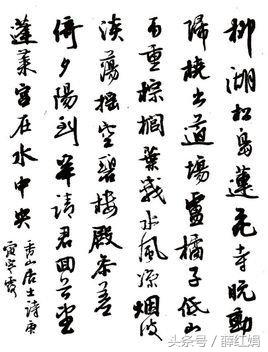 柳湖松島蓮花寺晚動
歸橈出道場盧橘子低山
雨重棕櫚葉戰水風涼烟波
淡蕩摇空碧樓殿參差
倚夕陽到岸請君回首望
蓬萊宮在水中央
香山居士詩庚
寅寒露
头条号 / 薛红娟